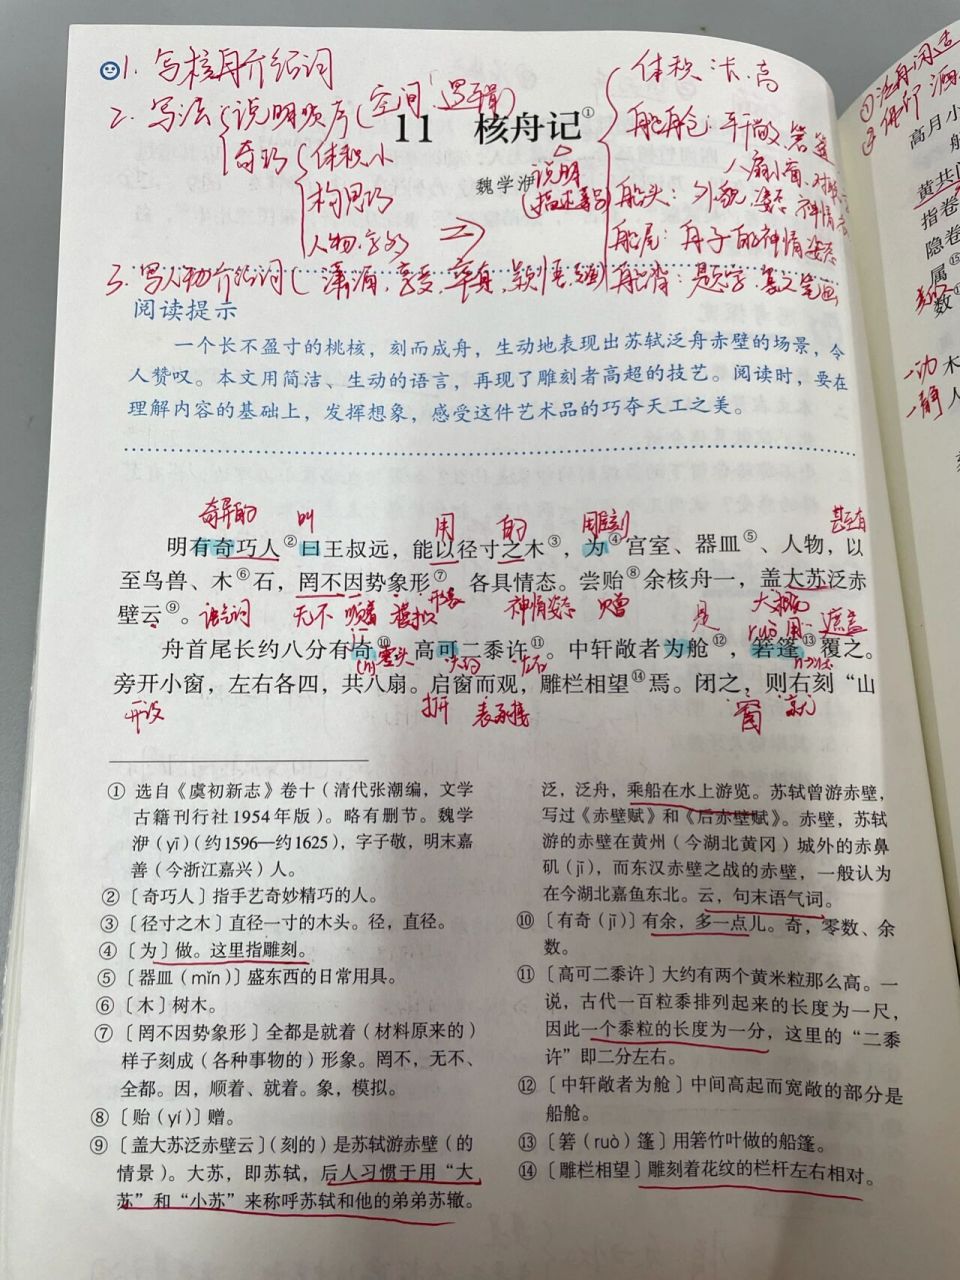 1. 写核舟介绍词
2. 写法 说明顺序(空间、逻辑)
奇巧 体积小
构思巧
人物、字多
3. 写人物介绍词
体积:长、高
船舱:
船头:外貌、姿态、神情
船尾:舟子的神情姿态
船背:题字、
说明
11 核舟记①
魏学洢
阅读提示
一个长不盈寸的桃核,刻而成舟,生动地表现出苏轼泛舟赤壁的场景,令
人赞叹。本文用简洁、生动的语言,再现了雕刻者高超的技艺。阅读时,要在
理解内容的基础上,发挥想象,感受这件艺术品的巧夺天工之美。
奇异的 叫 用 的 雕刻 甚至有
明有奇巧人②曰王叔远,能以径寸之木③,为④宫室、器皿⑤、人物,以
至鸟兽、木⑥石,罔不因势象形⑦,各具情态。尝贻⑧余核舟一,盖大苏泛赤
壁云⑨。
语气词 无不 顺着 模拟 形象 神情姿态 赠 是 大概
ruò 用 遮盖
舟首尾长约八分有奇⑩,高可二黍许⑪。中轩敞者为舱⑫,箬篷⑬覆之。
零头 大约 左右
旁开小窗,左右各四,共八扇。启窗而观,雕栏相望⑭焉。闭之,则右刻“山
开设 打开 表承接 窗 就
① 选自《虞初新志》卷十(清代张潮编,文学
古籍刊行社1954年版)。略有删节。魏学
洢(yī)(约1596—约1625),字子敬,明末嘉
善(今浙江嘉兴)人。
②〔奇巧人〕指手艺奇妙精巧的人。
③〔径寸之木〕直径一寸的木头。径,直径。
④〔为〕做。这里指雕刻。
⑤〔器皿(mǐn)〕盛东西的日常用具。
⑥〔木〕树木。
⑦〔罔不因势象形〕全都是就着(材料原来的)
样子刻成(各种事物的)形象。罔不,无不、
全都。因,顺着、就着。象,模拟。
⑧〔贻(yí)〕赠。
⑨〔盖大苏泛赤壁云〕(刻的)是苏轼游赤壁(的
情景)。大苏,即苏轼,后人习惯于用“大
苏”和“小苏”来称呼苏轼和他的弟弟苏辙。
泛,泛舟,乘船在水上游览。苏轼曾游赤壁,
写过《赤壁赋》和《后赤壁赋》。赤壁,苏轼
游的赤壁在黄州(今湖北黄冈)城外的赤鼻
矶(jī),而东汉赤壁之战的赤壁,一般认为
在今湖北嘉鱼东北。云,句末语气词。
⑩〔有奇(jī)〕有余,多一点儿。奇,零数、余
数。
⑪〔高可二黍许〕大约有两个黄米粒那么高。一
说,古代一百粒黍排列起来的长度为一尺,
因此一个黍粒的长度为一分,这里的“二黍
许”即二分左右。
⑫〔中轩敞者为舱〕中间高起而宽敞的部分是
船舱。
⑬〔箬(ruò)篷〕用箬竹叶做的船篷。
⑭〔雕栏相望〕雕刻着花纹的栏杆左右相对。
高月小
黄共
指卷
隐卷
属⑮
数
木
人